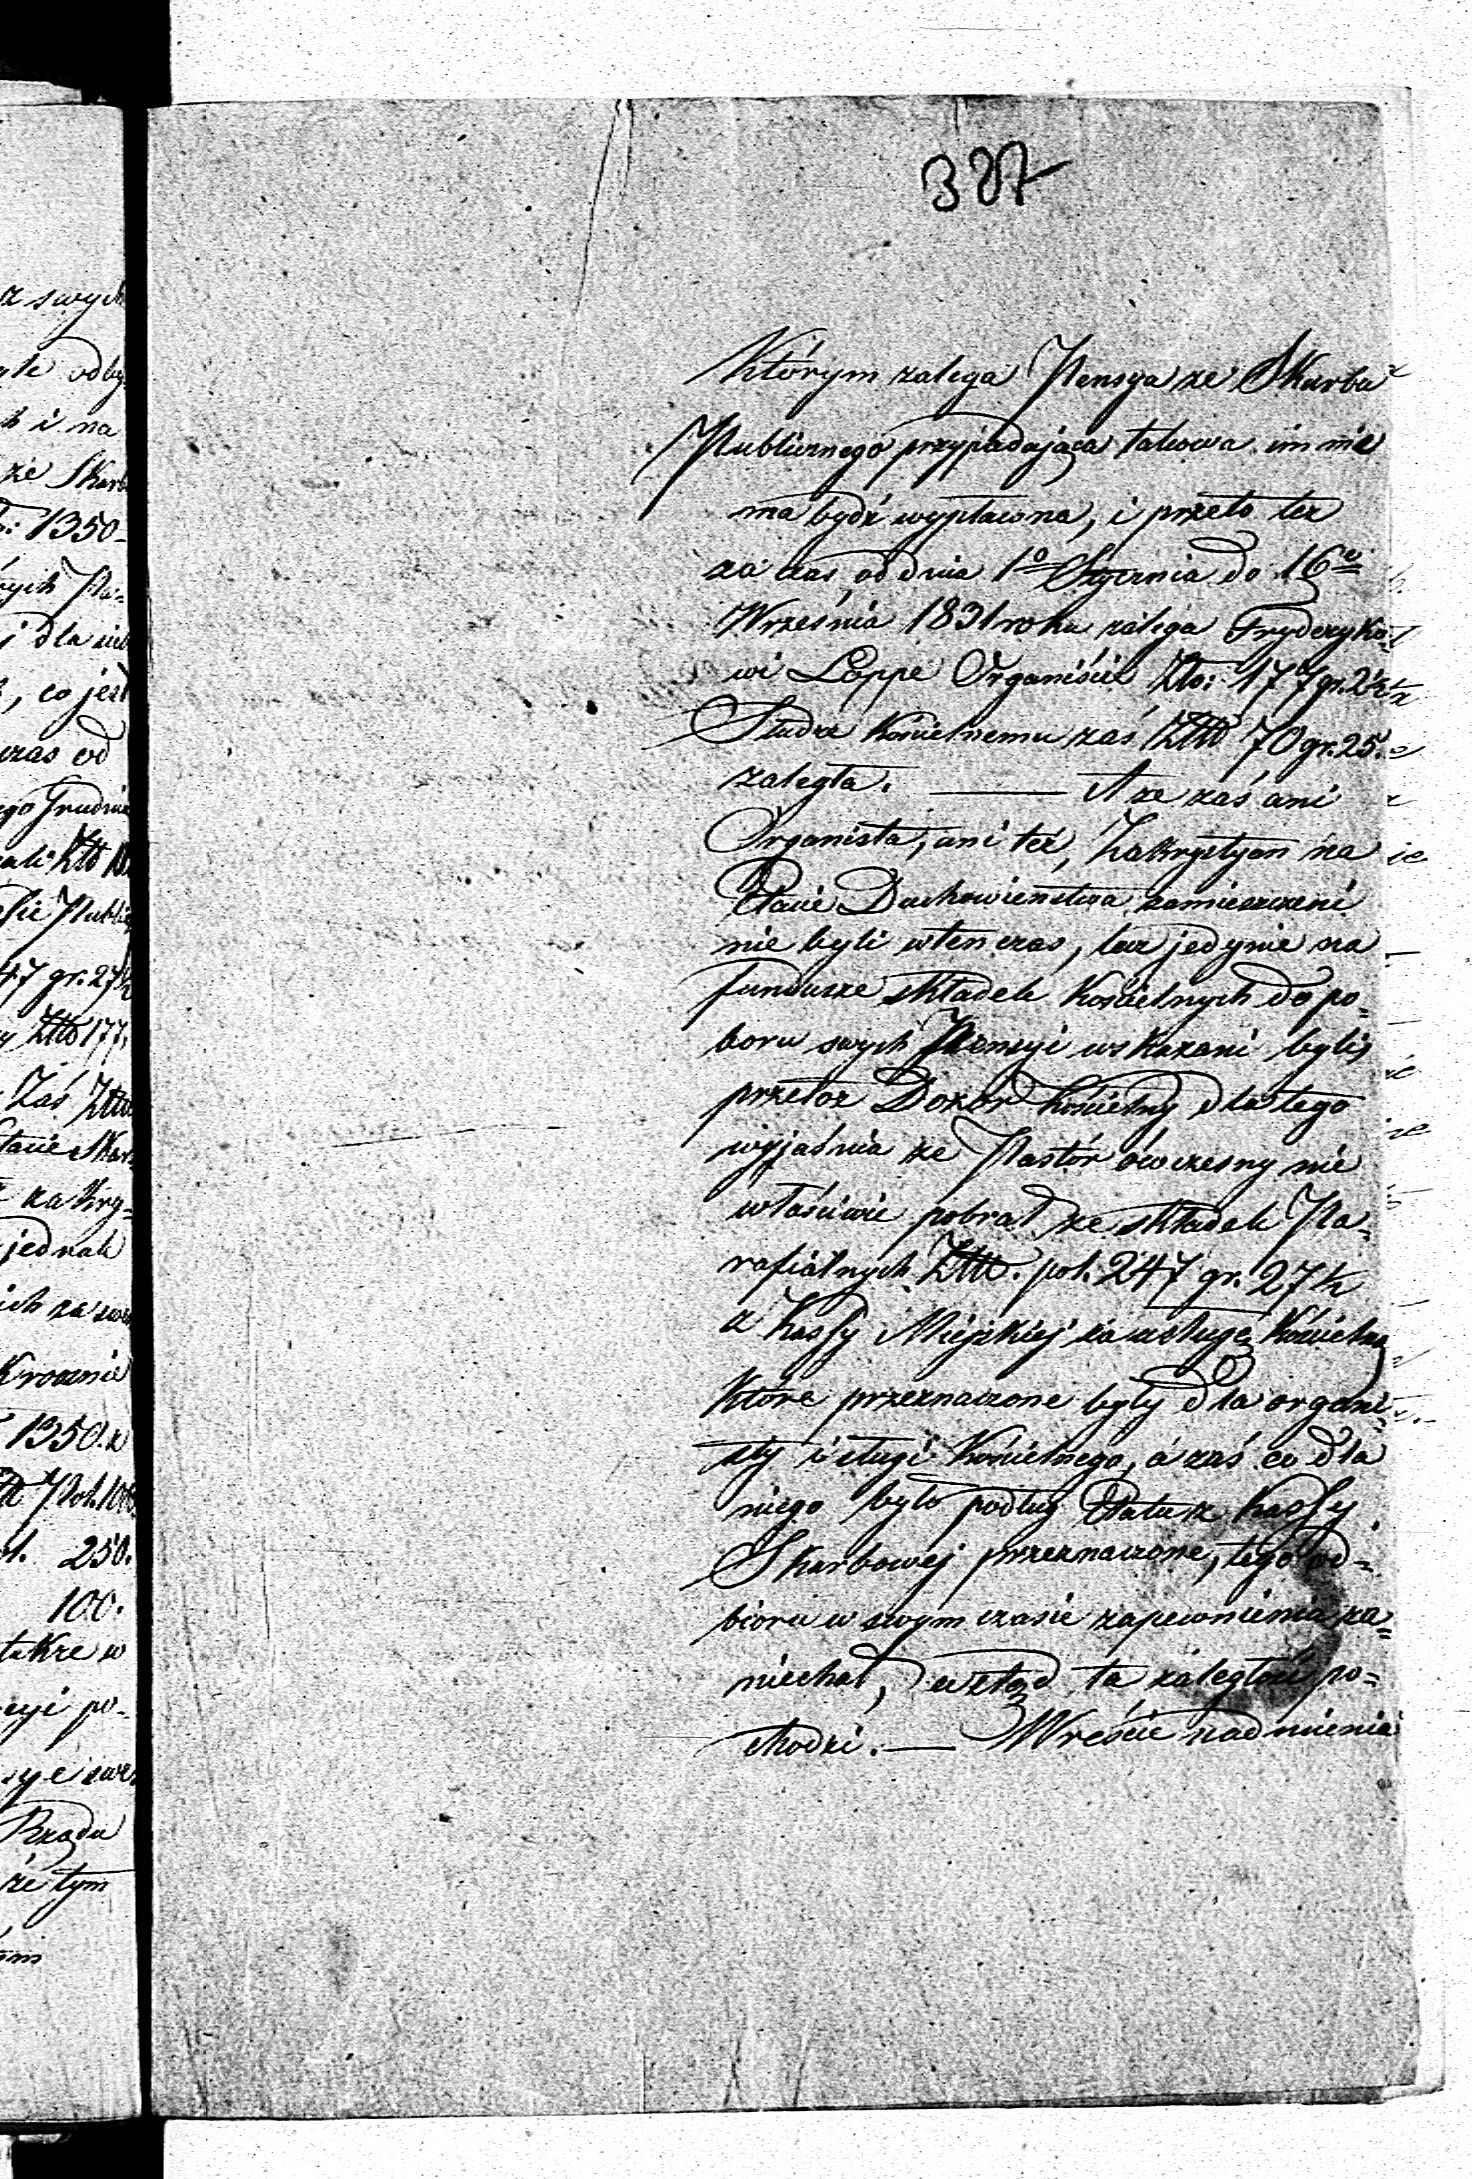 z swych
odby
i na
że Skarb
1350
dla
, co jest
czas od
go Grudnia
Publi
47 gr. 27½
Złt 177.
Zaś Złt
zakry=
jednak
1350. z
250.
100.
także w
po=
Rządu
że tym
327
którym zalega Pensya ze Skarbu
Publicznego przypadająca takowa im nie
ma bydź wypłacona, i przeto też
za czas od dnia 1º Stycznia do 16º
Września 1831 roku zalega Fryderyko=
wi Loppe Organiście Złto: 177 gr. 2½
Słudze Kościelnemu zaś Złtt 70 gr. 25.
zaległa. — A że zaś ani
Organista, ani też, Zakrystyan na
Etacie Duchowieństwa zamieszczeni
nie byli wten czas, lecz jedynie na
fundusze składek Kościelnych do po=
boru swych Pensyi wskazani byli,
przetoż Dozór Kościelny dla tego
wyjaśnia że Pastór ówczesny nie
właściwie pobrał ze składek Pa=
rafialnych Złtt. pol. 247 gr. 27½
z Kassy Miejskiej za usługę Kościelną
które przeznaczone były dla organi=
sty i sługi Kościelnego, a zaś co dla
niego było podług Etatu z Kassy
Skarbowej przeznaczone, tego od=
bioru w swym czasie zapewnienia za=
niechał, zkąd ta zaległość po=
chodzi. — Wreście nadmienia